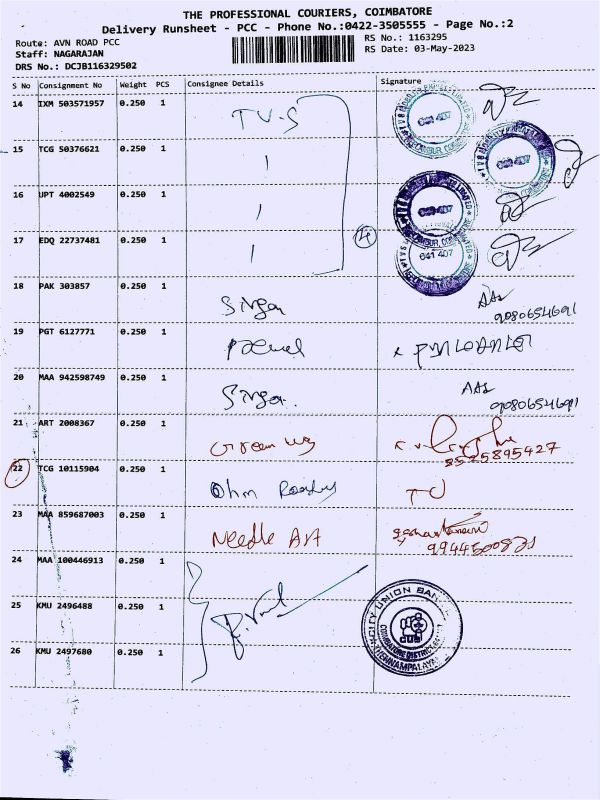 THE PROFESSIONAL COURIERS, COIMBATORE
Delivery Runsheet - PCC - Phone No.:0422-3505555 - Page No.:2
Route: AVN ROAD PCC
RS No.: 1163295
Staff: NAGARAJAN
RS Date: 03-May-2023
DRS No.: DCJB116329502
S No Consignment No Weight PCS Consignee Details Signature
14 IXM 503571957 0.250 1 TV-S
641 407
15 TCG 50376621 0.250 1
641 407
16 UPT 4002549 0.250 1
641 407
17 EDQ 22737481 0.250 1 4
641 407
18 PAK 303857 0.250 1
9080654691
19 PGT 6127771 0.250 1
20 MAA 942598749 0.250 1
9080654691
21 ART 2008367 0.250 1 Green
8525895427
22 TCG 10115904 0.250 1 Ohm
23 MAA 859687003 0.250 1 Needle Art
9944500821
24 MAA 100446913 0.250 1
25 KMU 2496488 0.250 1
CITY UNION BANK
CUB
COIMBATORE DISTRICT
26 KMU 2497680 0.250 1